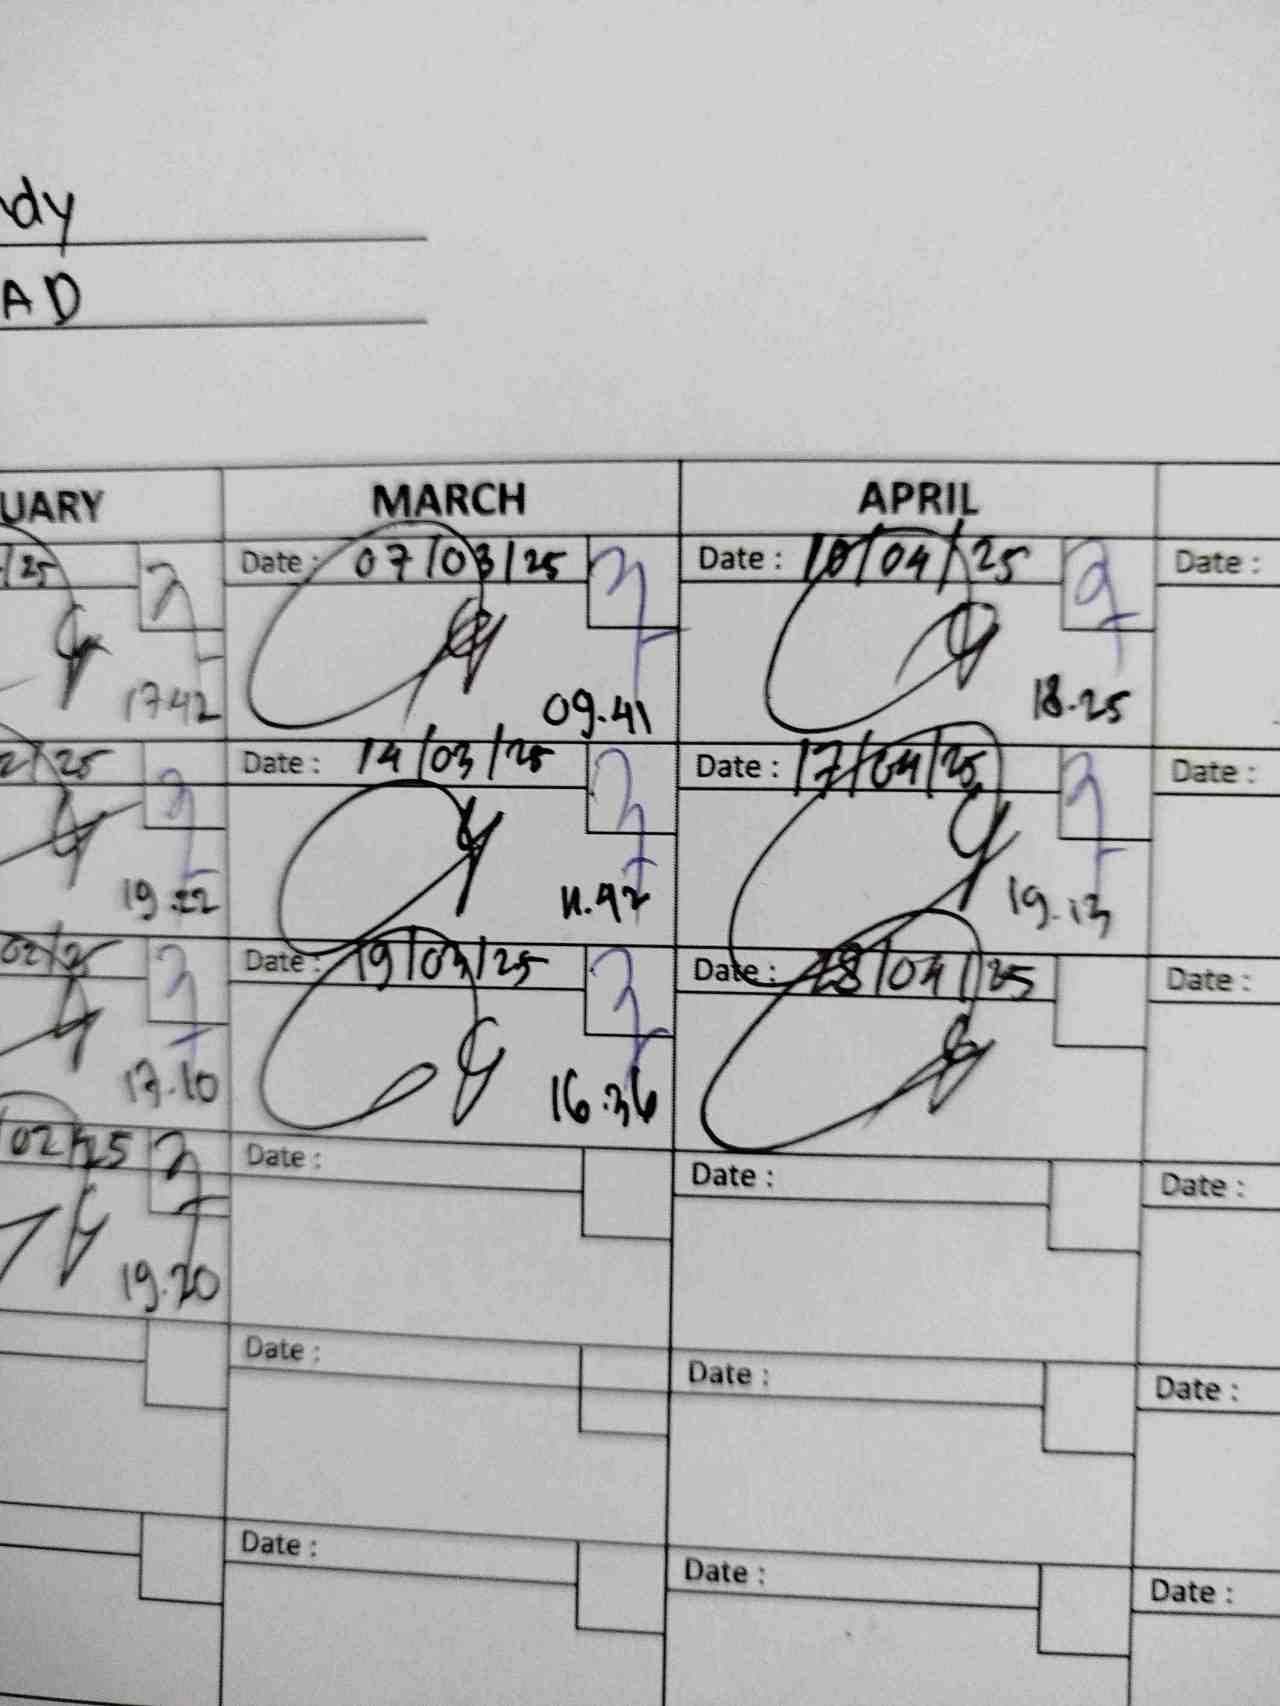 dy
AD
UARY MARCH APRIL
/25 Date : 07/03/25 Date : 10/04/25 Date :
17.42 09.41 18.25
2/25 Date : 14/03/25 Date : 17/04/25 Date :
19.22 19.13
02/25 Date : 19/03/25 Date : 28/04/25 Date :
17.10 16.36
02/25 Date : Date : Date :
19.20
Date : Date : Date :
Date : Date : Date :